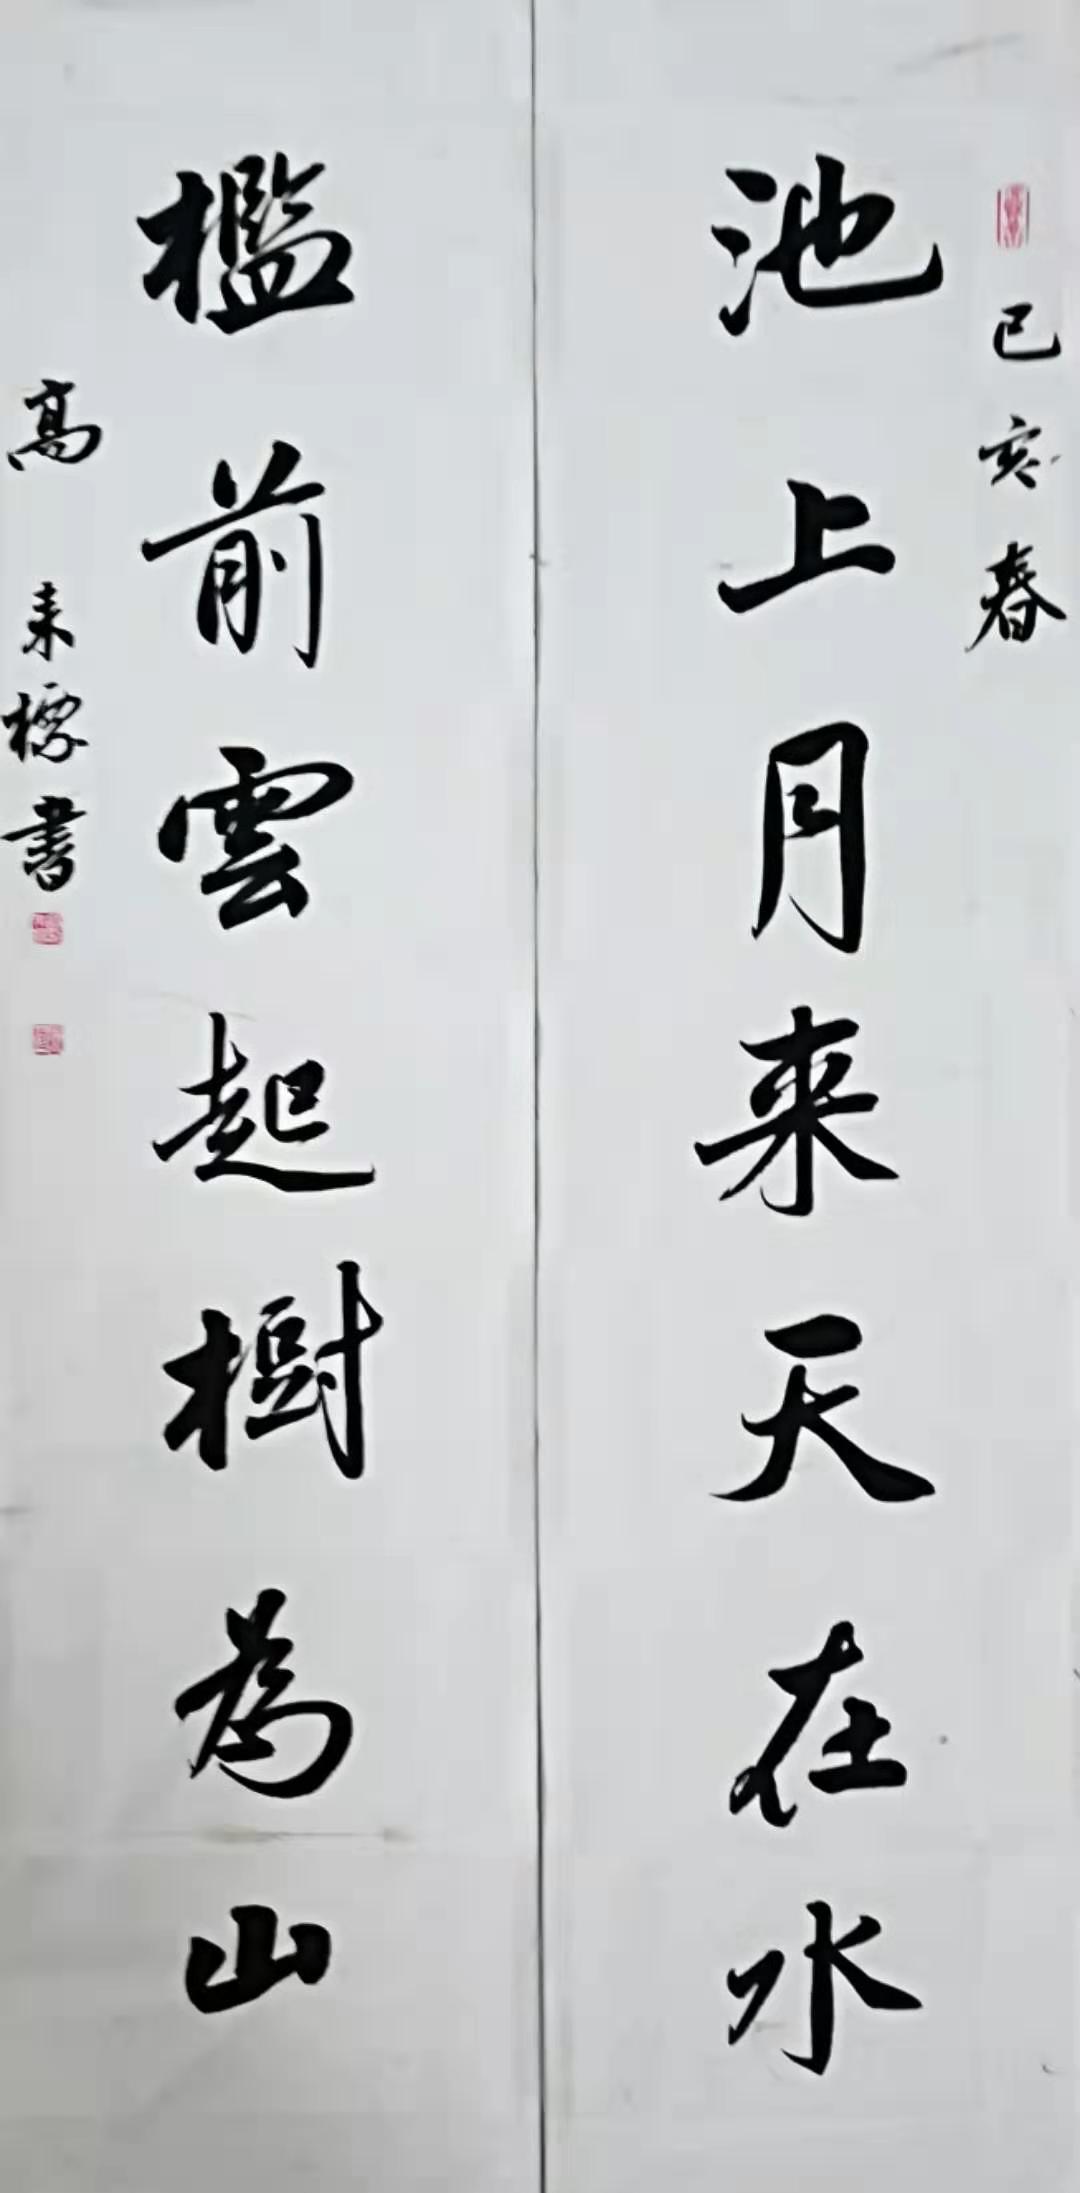 己亥春
池上月来天在水
檻前雲起樹為山
高來標書